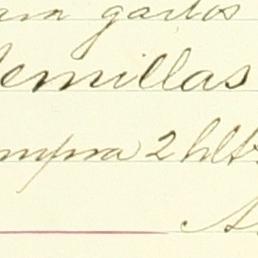 gastos
Semillas
compra 2 hlts